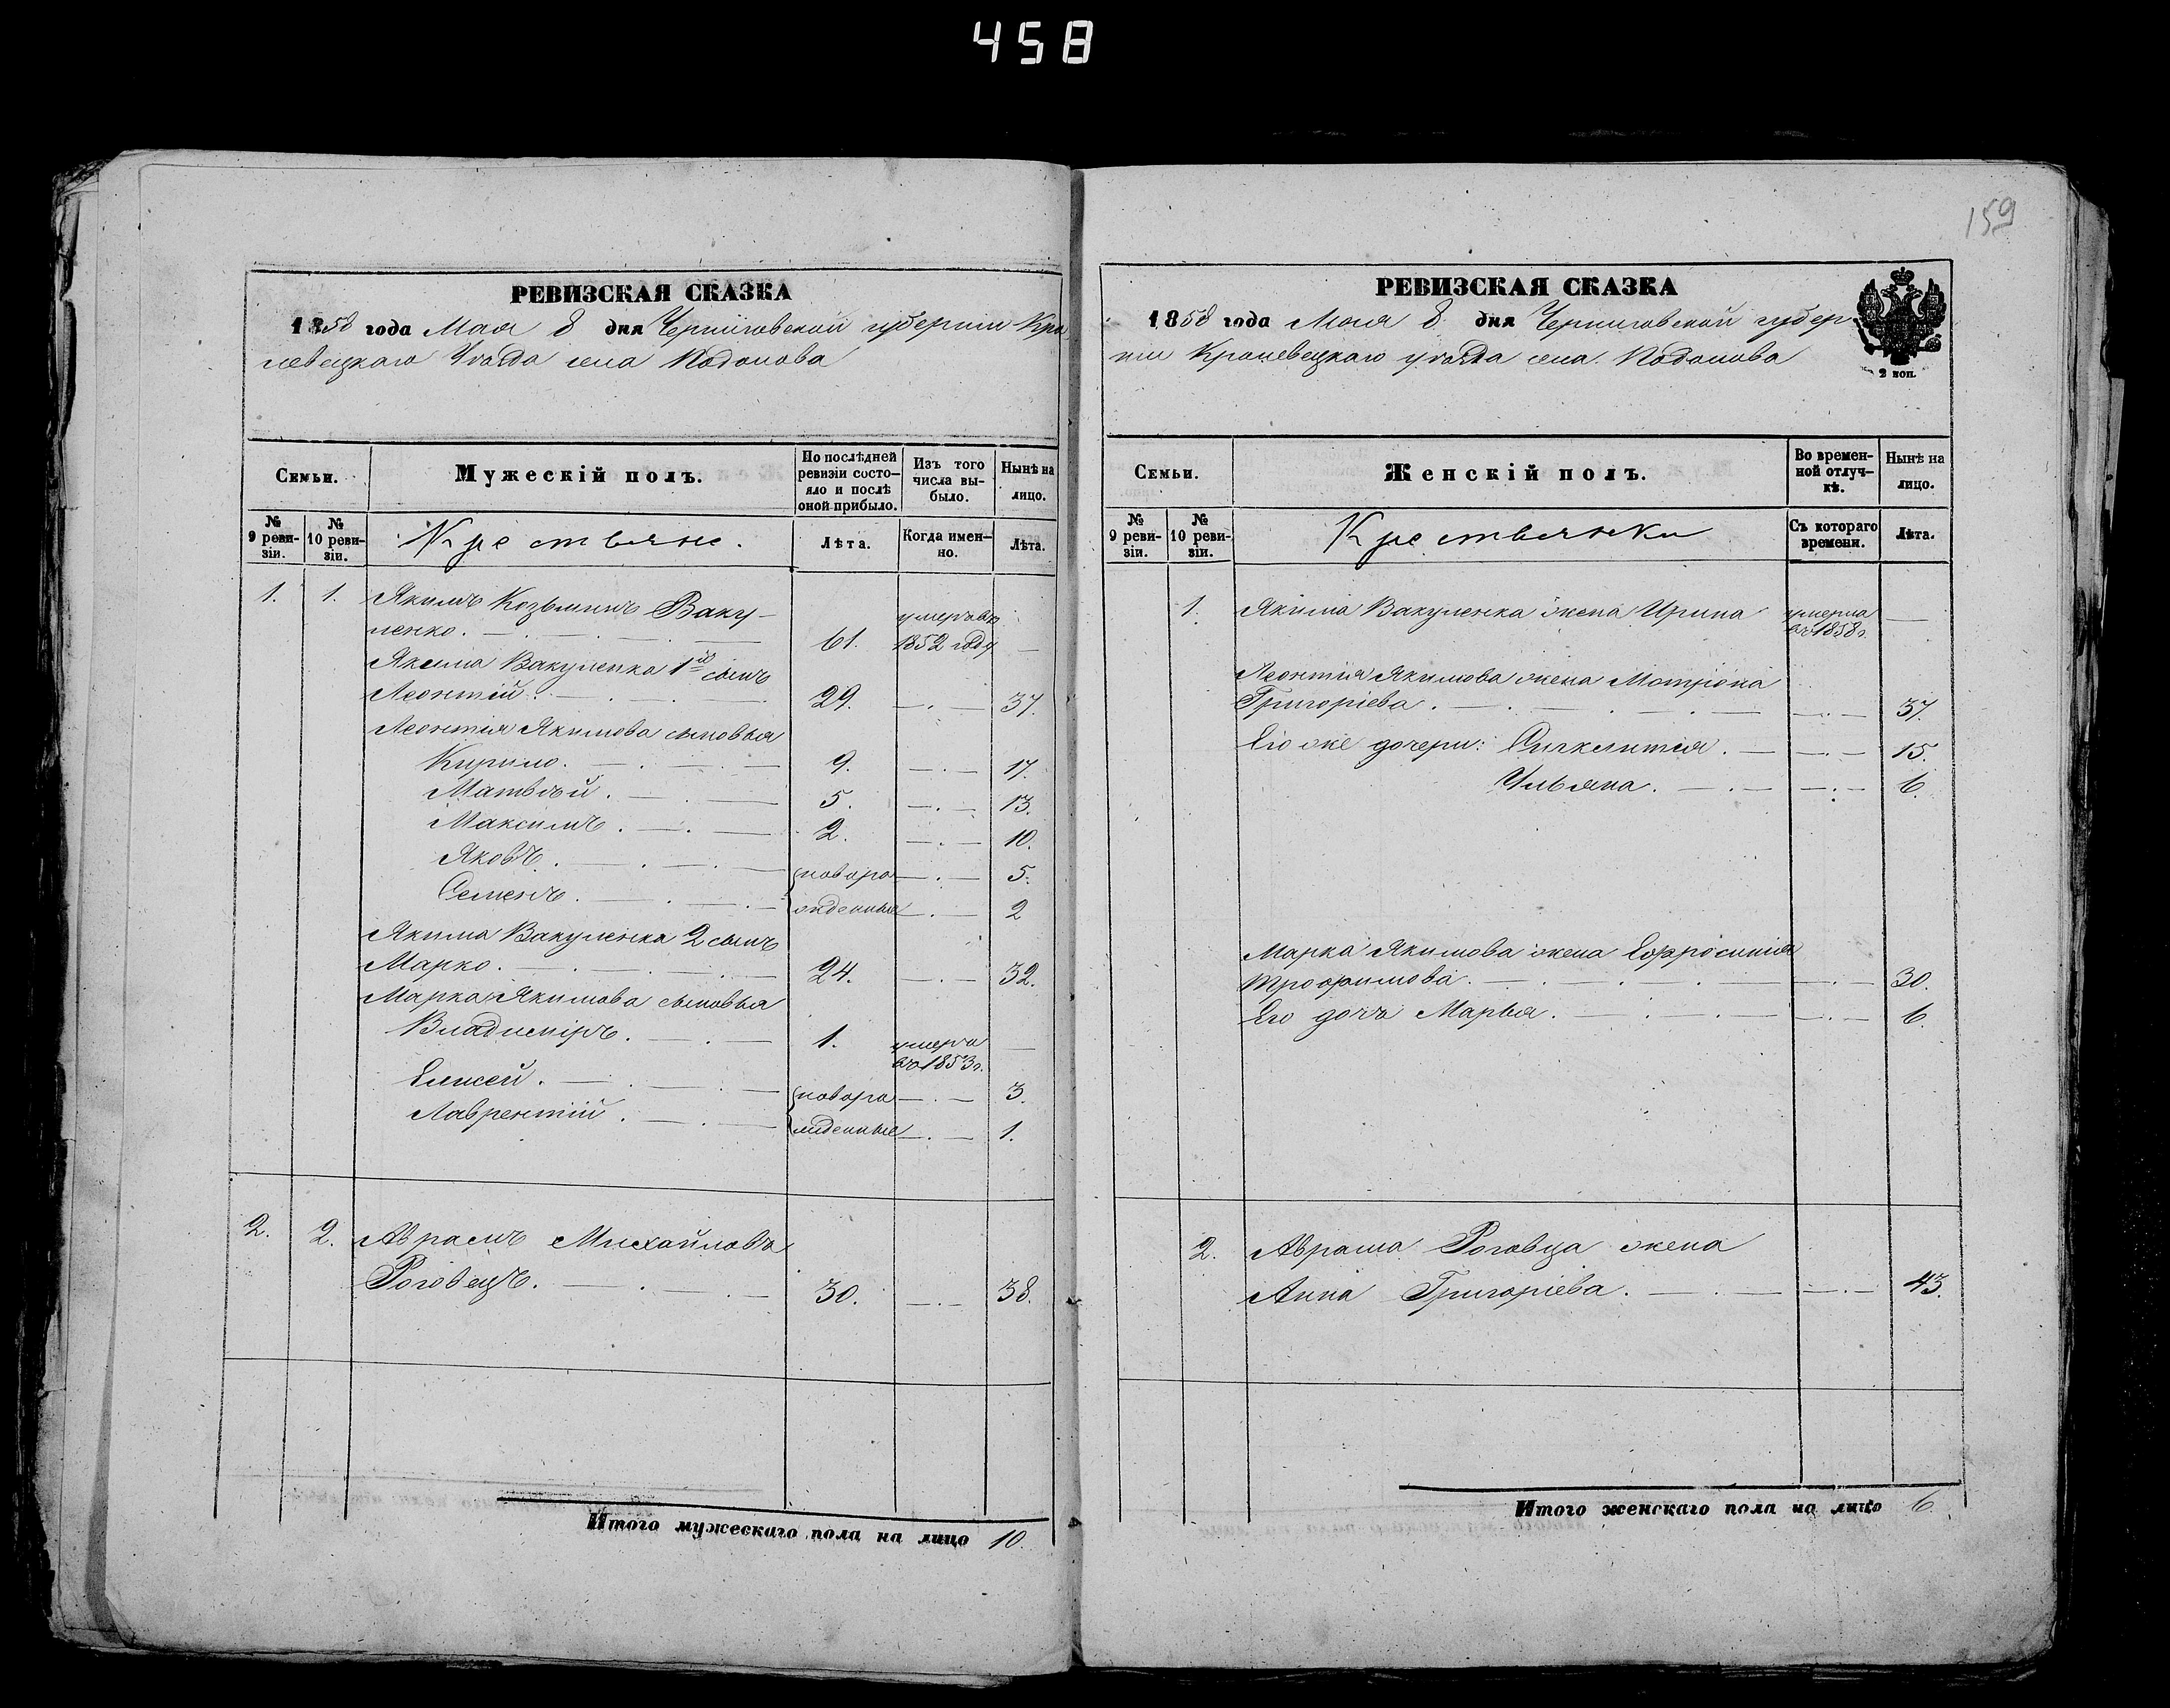 458
159
РЕВИЗСКАЯ СКАЗКА
1858 года Мая 8 дня Черниговской губернии Кро
левецкаго Уѣзда села Подолова
Семьи.
Мужескій полъ.
По послѣдней ревизіи состо-яло и послѣ оной прибыло.
Изъ того числа вы-было.
Нынѣ на лицо.
№ 9 реви-зіи.
№ 10 реви-зіи.
Крестьяне.
Лѣта.
Когда имен-но.
Лѣта.
1. 1. Якимъ Козьминъ Ваку-
ленко. 61. умеръ въ 1852 году
Якима Вакуленка 1й сынъ
Леонтій. 29. 37.
Леонтія Якимова сыновья
Кирило. 9. 17.
Матвѣй. 5. 13.
Максимъ. 2. 10.
Яковъ. новоро 5.
Семенъ. жденные 2
Якима Вакуленка 2 сынъ
Марко. 24. 32.
Марка Якимова сыновья
Владиміръ. 1. умеръ въ 1853 г.
Елисей. новоро 3.
Лаврентій. жденные 1.
2. 2. Аврамъ Михайловъ
Роговецъ. 30. 38.
Итого мужескаго пола на лицо 10.
РЕВИЗСКАЯ СКАЗКА
1858 года Мая 8 дня Черниговской губер
ніи Кролевецкаго уѣзда села Подолова
2 коп.
Семьи.
Женскій полъ.
Во времен-ной отлуч-кѣ.
Нынѣ на лицо.
№ 9 реви-зіи.
№ 10 реви-зіи.
Крестьянки
Съ котораго времени.
Лѣта.
1. Якима Вакуленка жена Ирина умерла въ 1858 г.
Леонтія Якимова жена Мотрона
Григоріева. 37.
Его же дочери: Синклитія. 15.
Ульяна. 6.
Марка Якимова жена Ефросинія
Трофимова. 30.
Его дочь Марья. 6.
2. Аврама Роговца жена
Анна Григоріева. 43.
Итого женскаго пола на лицо 6